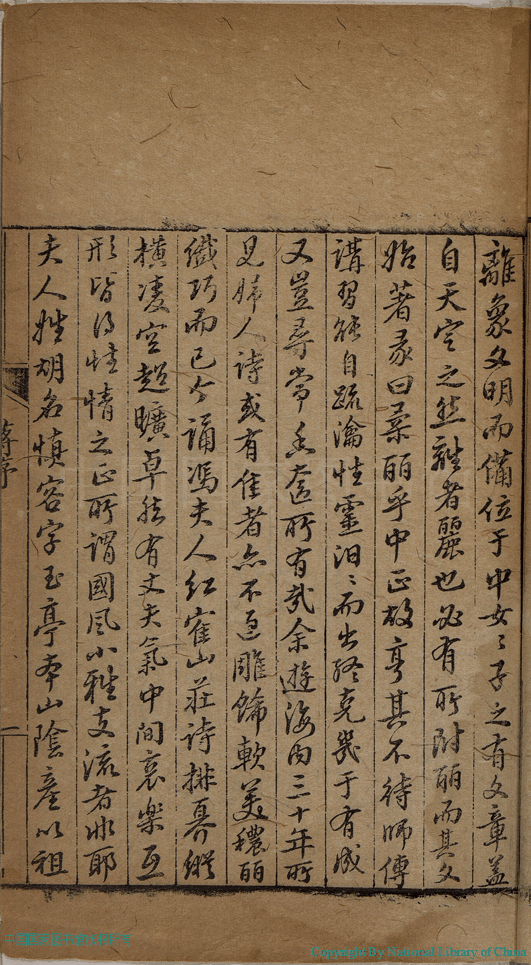 離象文明而備位于中女〻子之有文章蓋
自天定之然離者麗也必有所附麗而其文
始著彖曰柔麗乎中正故亨其不待師傅
講習能自疏瀹性靈汩〻而出終克幾于有成
又豈尋常香奩所有哉余遊海內三十年所
見婦人詩或有佳者亦不過雕飾軟美穠麗
纖巧而已今誦馮夫人紅雀山莊詩排奡縱
橫凌空超曠卓然有丈夫氣中間哀樂互
形皆得性情之正所謂國風小雅支流者非耶
夫人姓胡名慎容字玉亭本山陰產以祖
蔣序
二
Copyright By National Library of China